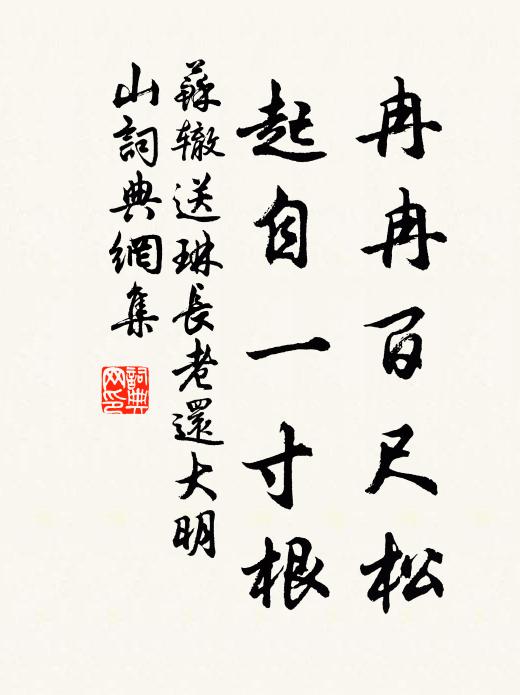 冉冉百尺松
起自一寸根
蘇辙送琳長老還大明
山詞典網集
詞典
网印